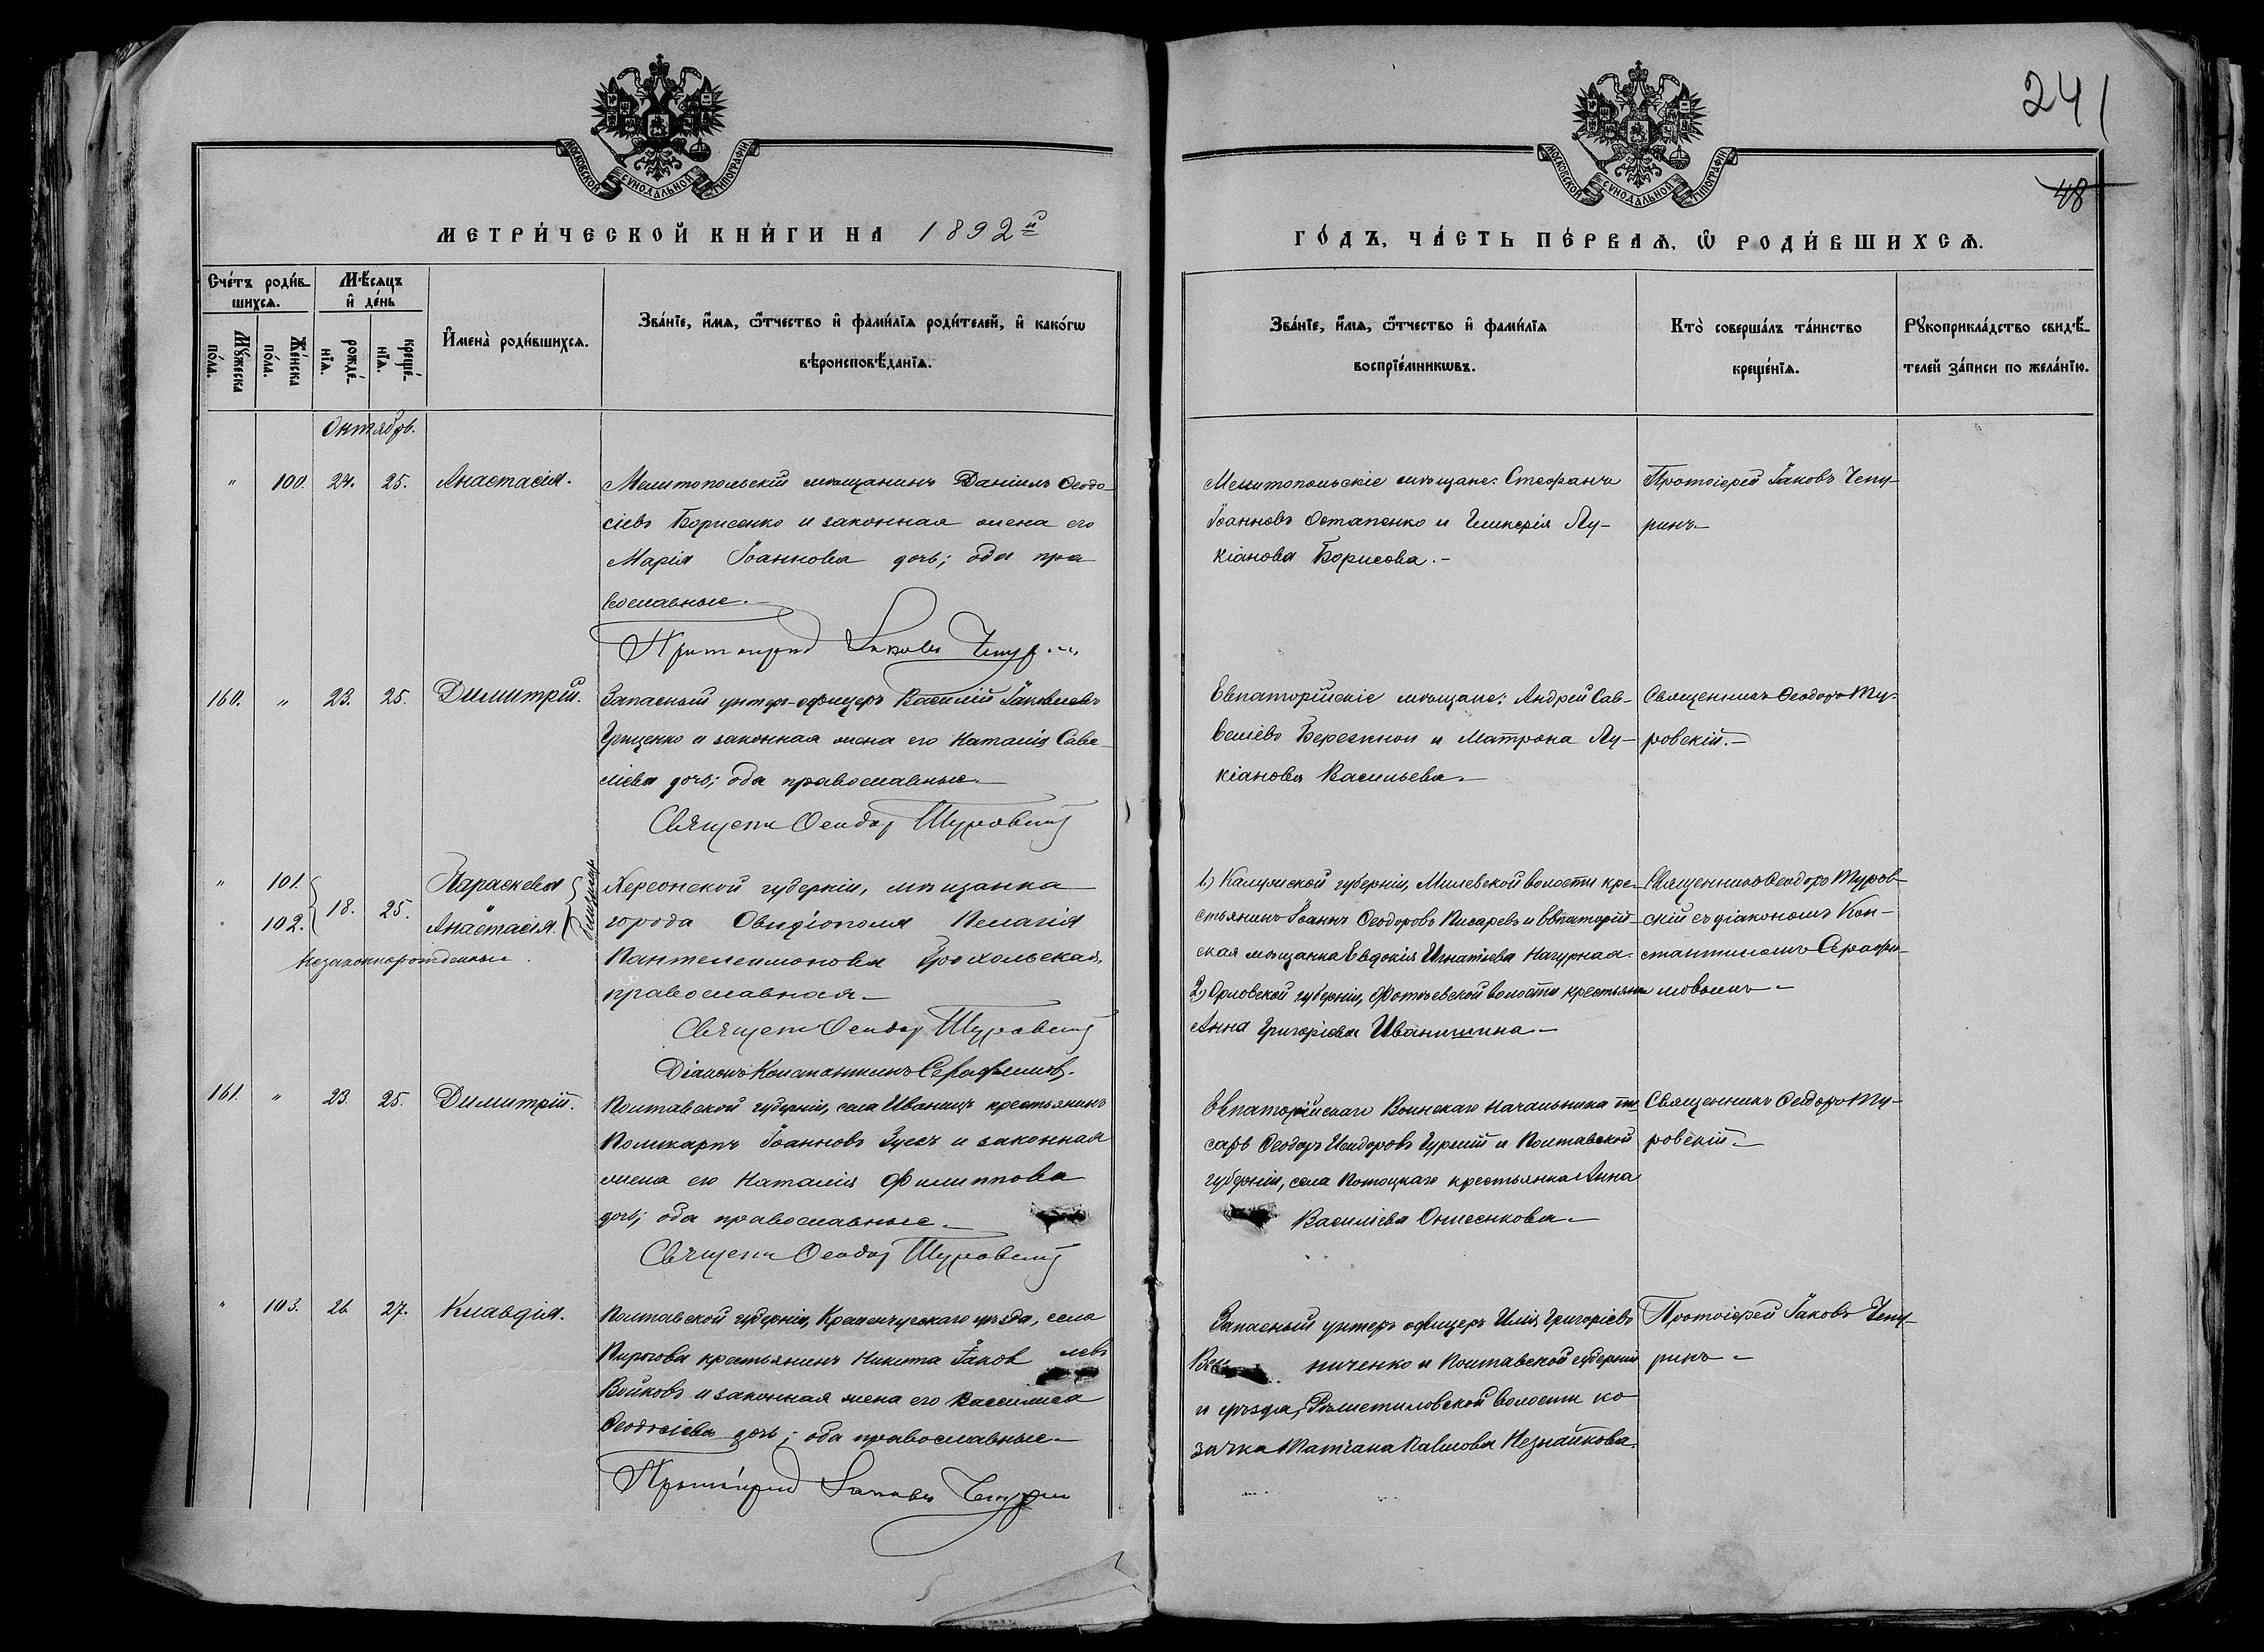 241
48
МОСКОВСКОЙ СѴНОДАЛЬНОЙ ТИПОГРАФІИ
МОСКОВСКОЙ СѴНОДАЛЬНОЙ ТИПОГРАФІИ
МЕТРИ́ЧЕСКОЙ КНИ́ГИ НА 1892й
ГО́ДЪ, ЧА́СТЬ ПЕ́РВАѦ, Ѡ РОДИ́ВШИХСѦ.
Сче́тъ роди́в-
шихсѧ.
Мꙋ́жеска
по́ла.
Же́нска
по́ла.
Мѣ́сѧцъ
и҆ де́нь
рожде́-
нїѧ.
креще́-
нїѧ.
И҆мена̀ роди́вшихсѧ.
Зва́нїе, и҆́мѧ, ѻ҆́тчество и҆ фами́лїѧ роди́телей, и҆ како́гѡ
вѣроисповѣ́данїѧ.
Зва́нїе, и҆́мѧ, ѻ҆́тчество и҆ фами́лїѧ
воспрїе́мникѡвъ.
Кто̀ соверша́лъ та́инство
креще́нїѧ.
Рꙋкоприкла́дство свидѣ́-
телей за́писи по жела́нїю.
Октябрь.
" 100. 24. 25. Анастасія.
Мелитопольскій мѣщанинъ Даніилъ Ѳеодо-
сіевъ Борисенко и законная жена его
Марія Іоаннова дочь; оба пра
вославные.
Протоіерей Іаковъ Чепуринъ
Мелитопольскіе мѣщане: Стефанъ
Іоанновъ Остапенко и Гликерія Лу-
кіанова Борисова.-
Протоіерей Іаковъ Чепу-
ринъ
160. " 23. 25. Димитрій.
Запасный унтеръ-офицеръ Василій Іаковлевъ
Грищенко и законная жена его Наталія Саве-
ліева дочь; оба православные.
Священ Ѳеодор Туровскій
Евпаторійскіе мѣщане: Андрей Сав-
веліевъ Березкнои и Матрона Лу-
кіанова Васильева.
Священникъ Ѳеодоръ Ту-
ровскій.
" 101. Параскева
18. 25. близнецы
" 102. Анастасія.
незаконнорожденные.
Херсонской губерніи, мѣщанка
города Овидіополя Пелагія
Пантелеимонова Грохольская,
православная.
Священ Ѳеодор Туровскій
Діаконъ Константинъ Серафимов.
1.) Калужской губерніи, Милевской волости кре-
стьянинъ Іоаннъ Ѳеодоровъ Писаревъ и Евпаторій-
ская мѣщанка Евдокія Игнатіева Нагурная.
2.) Орловской губерніи, Фотьевской волости крестьянка
Анна Григоріева Иванишина.
Священникъ Ѳеодоръ Туров-
скій съ діакономъ Кон-
стантиномъ Серафи-
мовымъ
161. " 23. 25. Димитрій.
Полтавской губерніи, села Иваницъ крестьянинъ
Поликарпъ Іоанновъ Гусъ и законная
жена его Наталія Филиппова
дочь; оба православные.
Священ Ѳеодор Туровскій
Евпаторійскаго Воинскаго Начальника пи-
сарь Ѳеодоръ Исидоровъ Гурскій и Полтавской
губерніи, села Потоцкаго крестьянка Анна
Василіева Онисенкова.
Священникъ Ѳеодоръ Ту-
ровскій
" 103. 26. 27. Клавдія.
Полтавской губерніи, Кременчугскаго уѣзда, села
Пирогова крестьянинъ Никита Іаковлевъ
Войковъ и законная жена его Васса
Ѳеодосіева дочь; оба православные.
Протоіерей Іаковъ Чепурин
Запасный унтеръ офицеръ Илія Григоріевъ
ниченко и Полтавской губерніи
и уѣзда, волости ко-
зачка Татіана Павлова Незнайкова.
Протоіерей Іаковъ Чепу-
ринъ